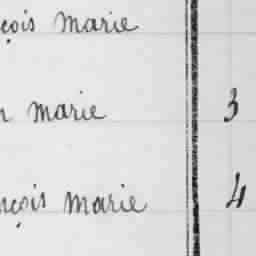 çois marie
n marie 3
nçois marie 4